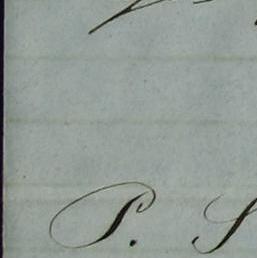 P. S